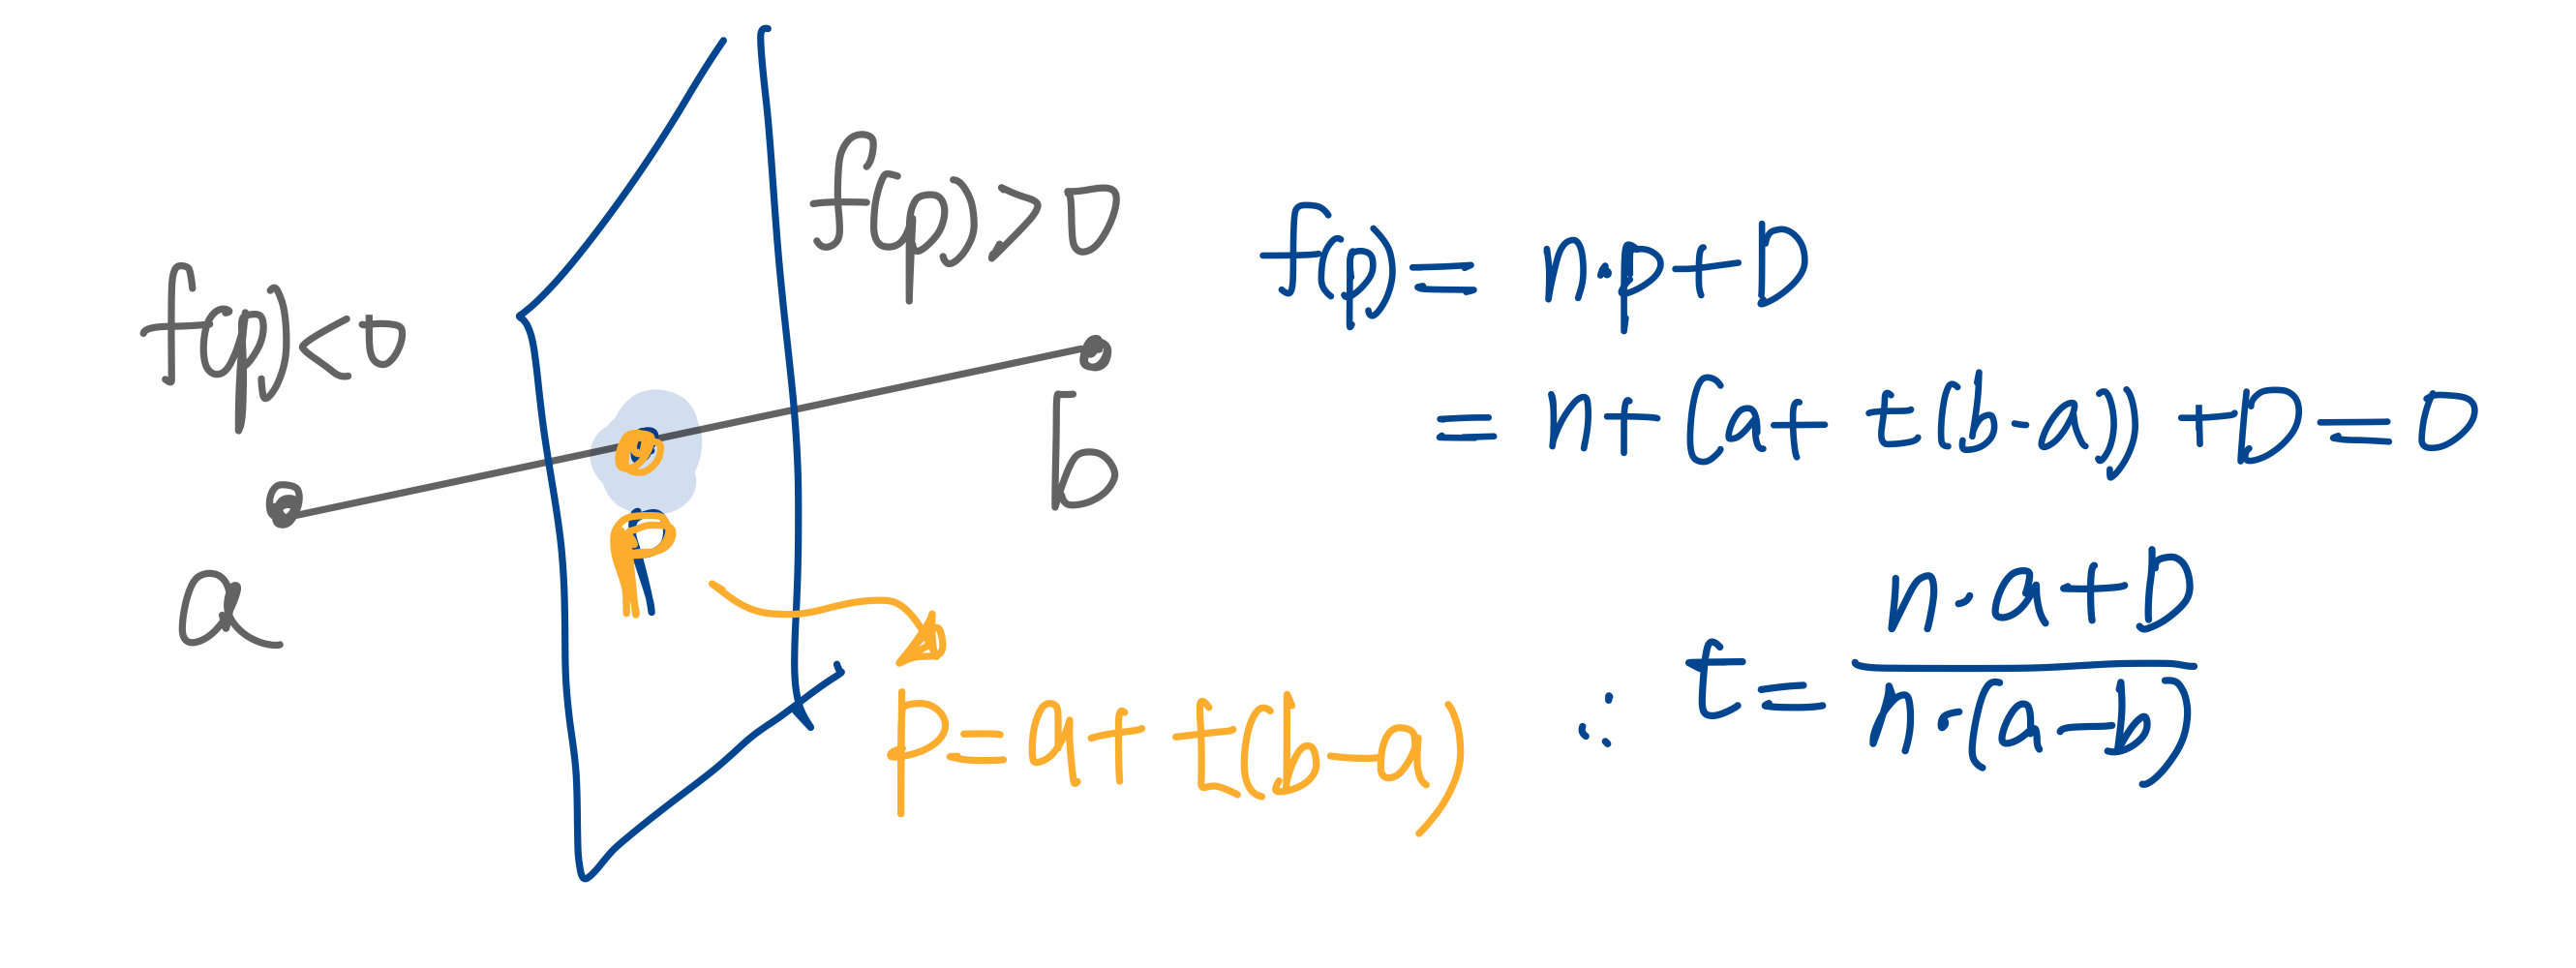 f(p)<0
f(p)>0
a
b
p
p=a+t(b-a)
f(p)= n·p+D
= n+(a+t(b-a))+D=0
∴ t= n·a+D
n·(a-b)